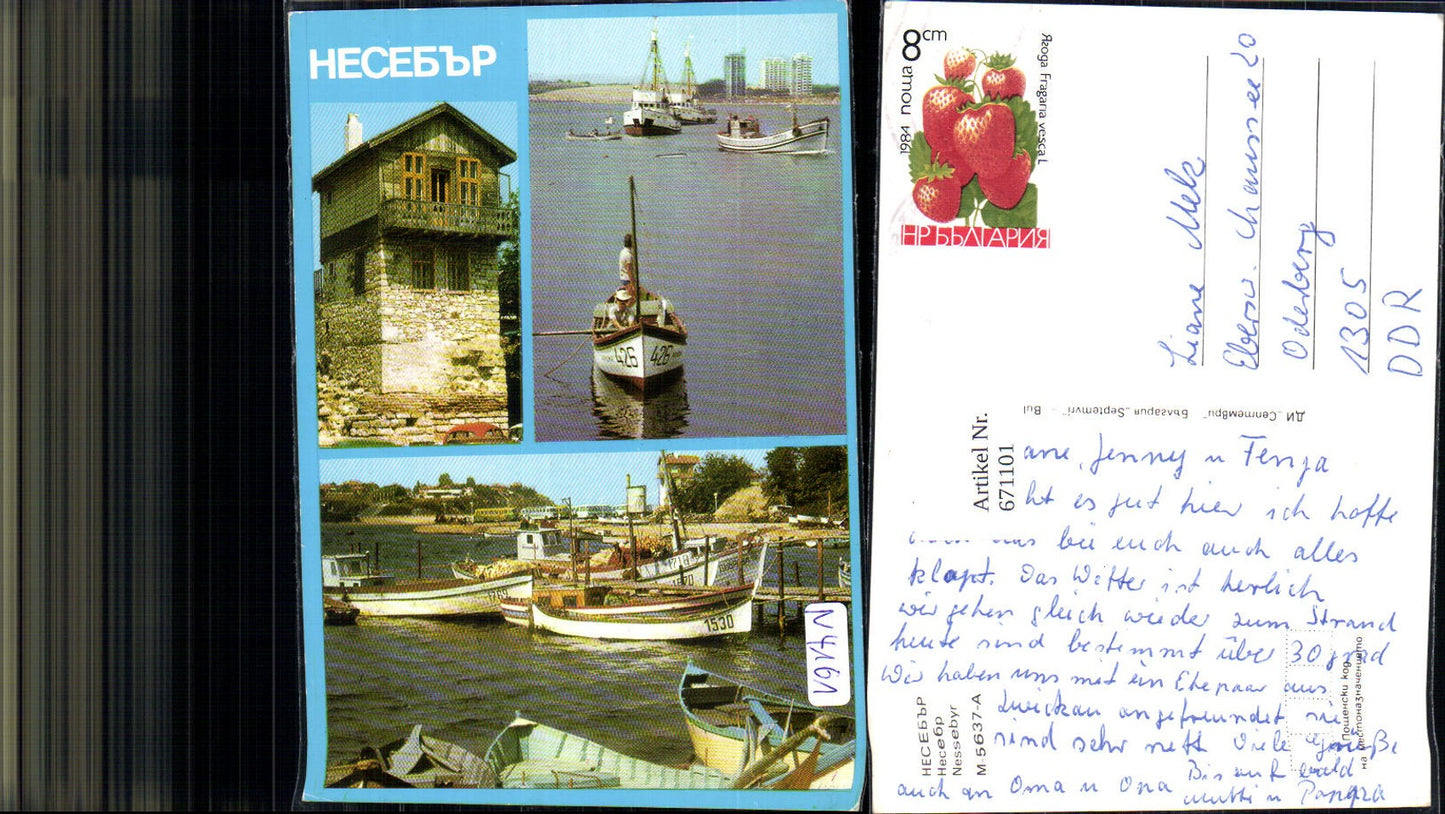 НЕСЕБЪР
426 426
1530
N4161
1984 поща 8 cm
Ягода Fragaria vesca L
НР БЪЛГАРИЯ
Liane
Ebersw. Chaussee 20
Oderberg
1305
DDR
ДИ „Септември" България „Septemvri" - Bul
Artikel Nr.
671101
ane, Jenny u Tenja
ht es gut hier ich hoffe
das bei euch auch alles
klapt. Das Wetter ist herlich
wir gehen gleich wieder zum Strand
heute sind bestemmt über 30 grad
Wir haben uns mit ein Ehepaar aus
Zwickau angefreundet sie
sind sehr nett Viele Grüße
auch an Oma u Opa Bis auf bald
Mutti u Papa
НЕСЕБЪР
Несебр
Nessebyr
М-5637-А
Пощенски код
на местоназначението